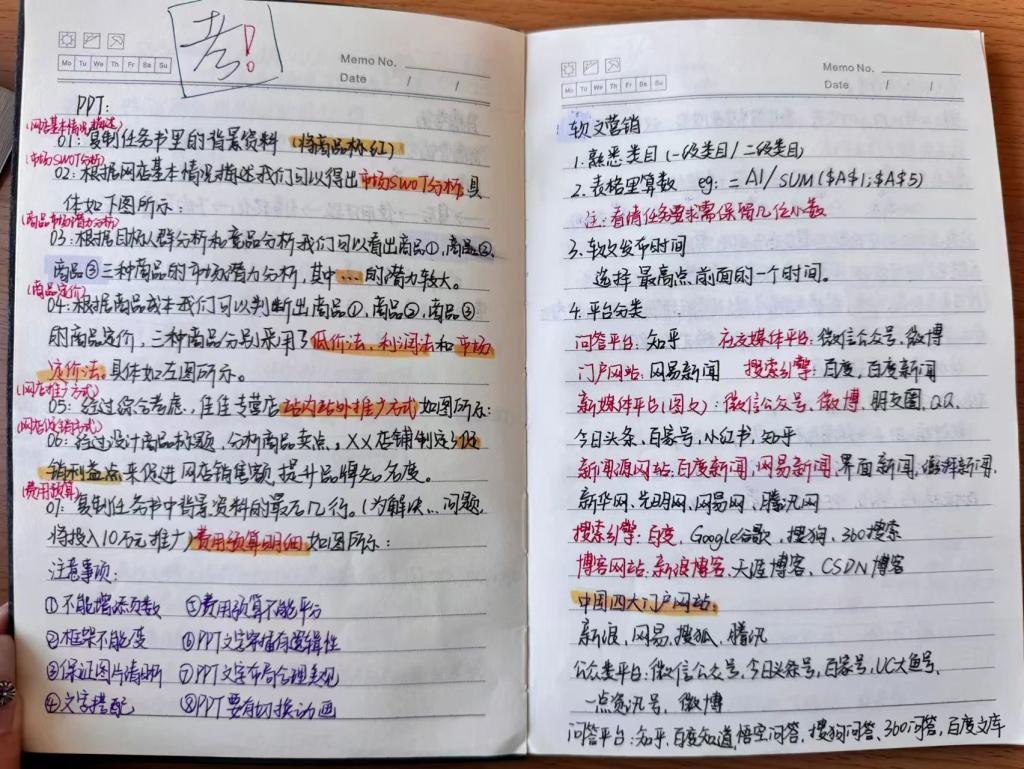 考!
Mo Tu We Th Fr Sa Su
Memo No.
Date / /
PPT:
(网店基本情况描述)
01: 复制任务书里的背景资料 (将商品标红)
(市场SWOT分析)
02: 根据网店基本情况描述我们可以得出市场SWOT分析,具
体如下图所示:
(商品市场潜力分析)
03: 根据目标人群分析和竞品分析我们可以看出商品①,商品②,
商品③三种商品的市场潜力分析,其中……的潜力较大。
(商品定价)
04: 根据商品成本我们可以判断出商品①,商品②,商品③
的商品定价,三种商品分别采用了低价法、利润法和市场
定价法。具体如左图所示。
(网店推广方式)
05: 经过综合考虑,佳佳专营店站内站外推广方式如图所示:
(网店促销方式)
06: 经过设计商品标题,分析商品卖点,XX店铺制定了促
销利益点来促进网店销售额,提升品牌知名度。
(费用预算)
07: 复制任务书中背景资料的最后几行。(为解决…问题,
将投入10万元推广)费用预算明细如图所示:
注意事项:
①不能增添页数 ⑤费用预算不能平分
②框架不能变 ⑥PPT文字富有逻辑性
③保证图片清晰 ⑦PPT文字布局合理美观
④文字搭配 ⑧PPT要有切换动画
Mo Tu We Th Fr Sa Su
Memo No.
Date / /
软文营销
1. 熟悉类目(一级类目/二级类目)
2. 表格里算数 eg: =A1/SUM($A$1:$A$5)
注: 看情任务要求需保留几位小数
3. 软文发布时间
选择最高点前面的一个时间。
4. 平台分类
问答平台: 知乎 社交媒体平台: 微信公众号、微博
门户网站: 网易新闻 搜索引擎: 百度、百度新闻
新媒体平台(图文): 微信公众号、微博、朋友圈、QQ、
今日头条、百家号、小红书、知乎
新闻源网站: 百度新闻、网易新闻、界面新闻、澎湃新闻、
新华网、光明网、网易网、腾讯网
搜索引擎: 百度、Google谷歌、搜狗、360搜索
博客网站: 新浪博客、天涯博客、CSDN博客
中国四大门户网站:
新浪、网易、搜狐、腾讯
公众类平台: 微信公众号、今日头条号、百家号、UC大鱼号、
一点资讯号、微博
问答平台: 知乎、百度知道、悟空问答、搜狗问答、360问答、百度文库